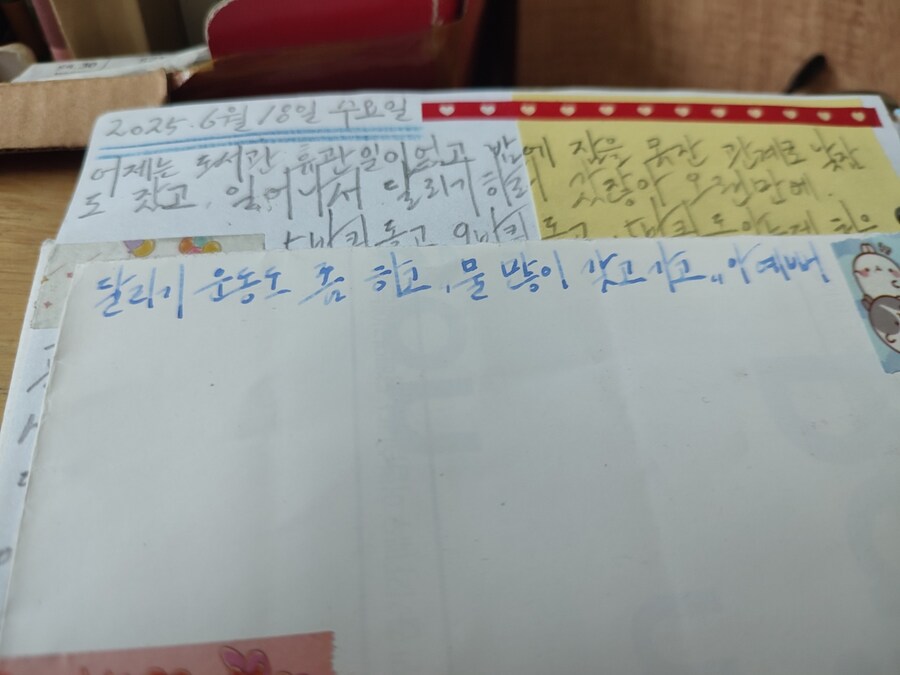 2025.6월 18일 수요일
어제는 도서관 휴관일이었고 밤에 잠을 못잔 관계로 낮잠
도 잤고, 일어나서 달리기 하러 갔잖아 오랜만에.
바퀴 돌고 9바퀴 돌고
달리기 운동도 좀 하고, 물 많이 갖고가고,